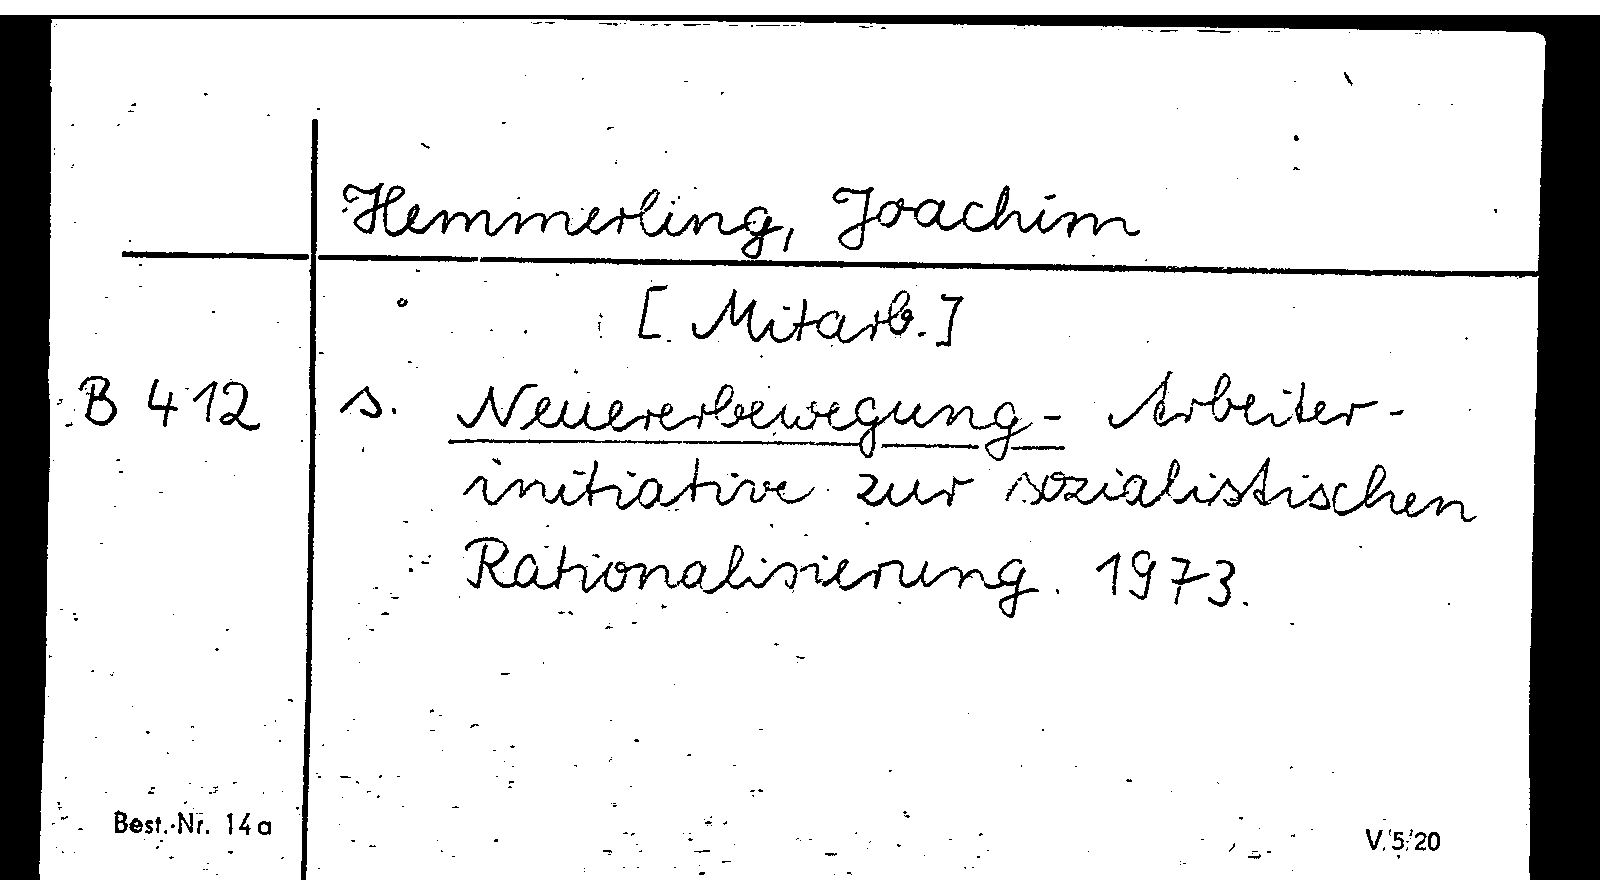 Hemmerling, Joachim
[Mitarb.]
B 412 s. Neuererbewegung - Arbeiter-
initiative zur sozialistischen
Rationalisierung. 1973.
Best.-Nr. 14a V/5/20